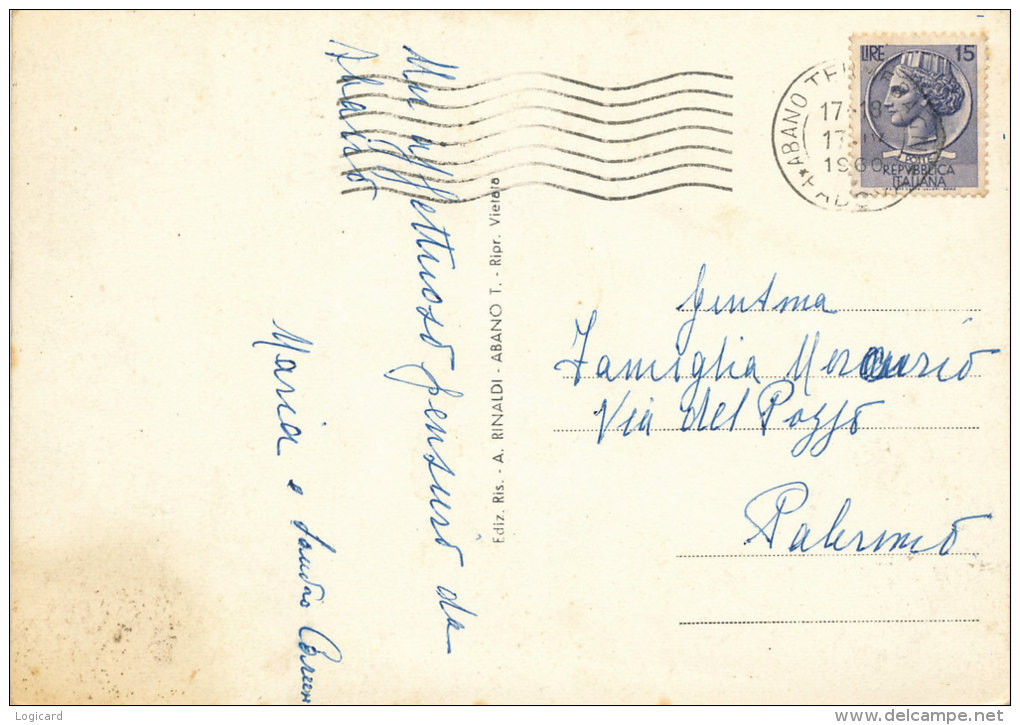 Un affettuoso pensiero da
Abano
Maria e Sandro
Ediz. Ris. - A. RINALDI - ABANO T. - Ripr. Vietata
LIRE 15
POSTE
REPVBBLICA
ITALIANA
ABANO TER
17-18
17
1960
PADO
Gentma
Famiglia Mercurio
Via del Pozzo
Palermo
Logicard
www.delcampe.net